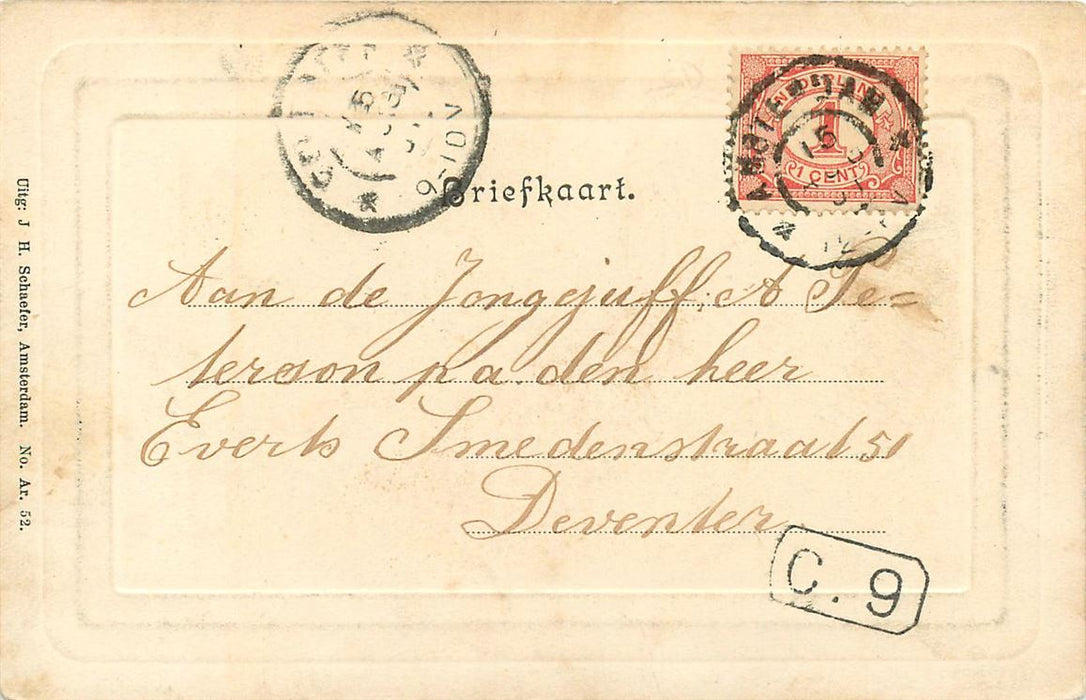 NEDERLAND
1
1 CENT
AMSTERDAM
Briefkaart.
Aan de Jongejuff. A Pe=
terson p/a. den heer
Everts Smedenstraat 51
Deventer
C. 9
Uitg: J H. Schaefer, Amsterdam. No. Ar. 52.
9-10V